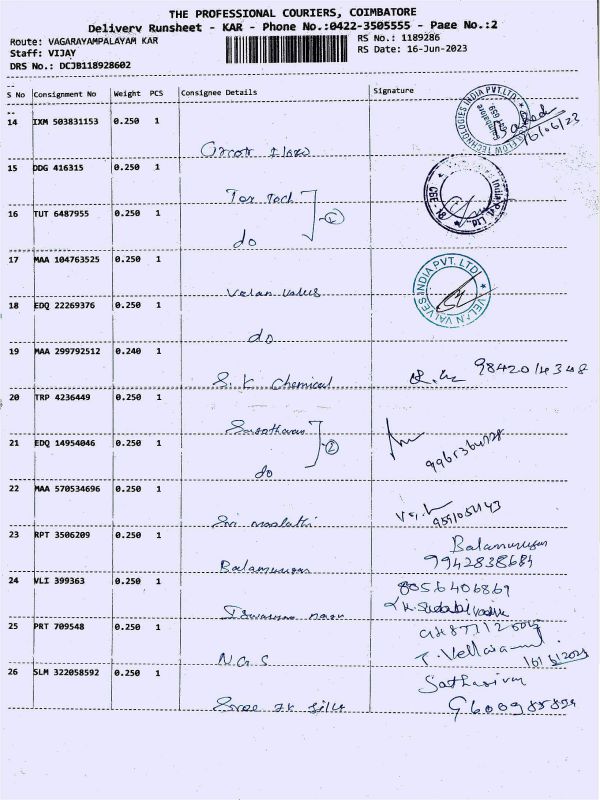 THE PROFESSIONAL COURIERS, COIMBATORE
Delivery Runsheet - KAR - Phone No.:0422-3505555 - Page No.:2
Route: VAGARAYAMPALAYAM KAR
RS No.: 1189286
Staff: VIJAY
RS Date: 16-Jun-2023
DRS No.: DCJB118928602
S No Consignment No Weight PCS Consignee Details Signature
14 IXM 503831153 0.250 1
16/06/23
15 DDG 416315 0.250 1
16 TUT 6487955 0.250 1
do
17 MAA 104763525 0.250 1
VELAN VALVES INDIA PVT. LTD
Velan valves
18 EDQ 22269376 0.250 1
do
19 MAA 299792512 0.240 1
S. K chemical
9842014348
20 TRP 4236449 0.250 1
21 EDQ 14954046 0.250 1
do
22 MAA 570534696 0.250 1
Sri malathi
23 RPT 3506209 0.250 1
Balamurugan
Balamurugan
9942838684
24 VLI 399363 0.250 1
8056406869
25 PRT 709548 0.250 1
N.G.S
26 SLM 322058592 0.250 1
Sathasivam
Sree sk silks